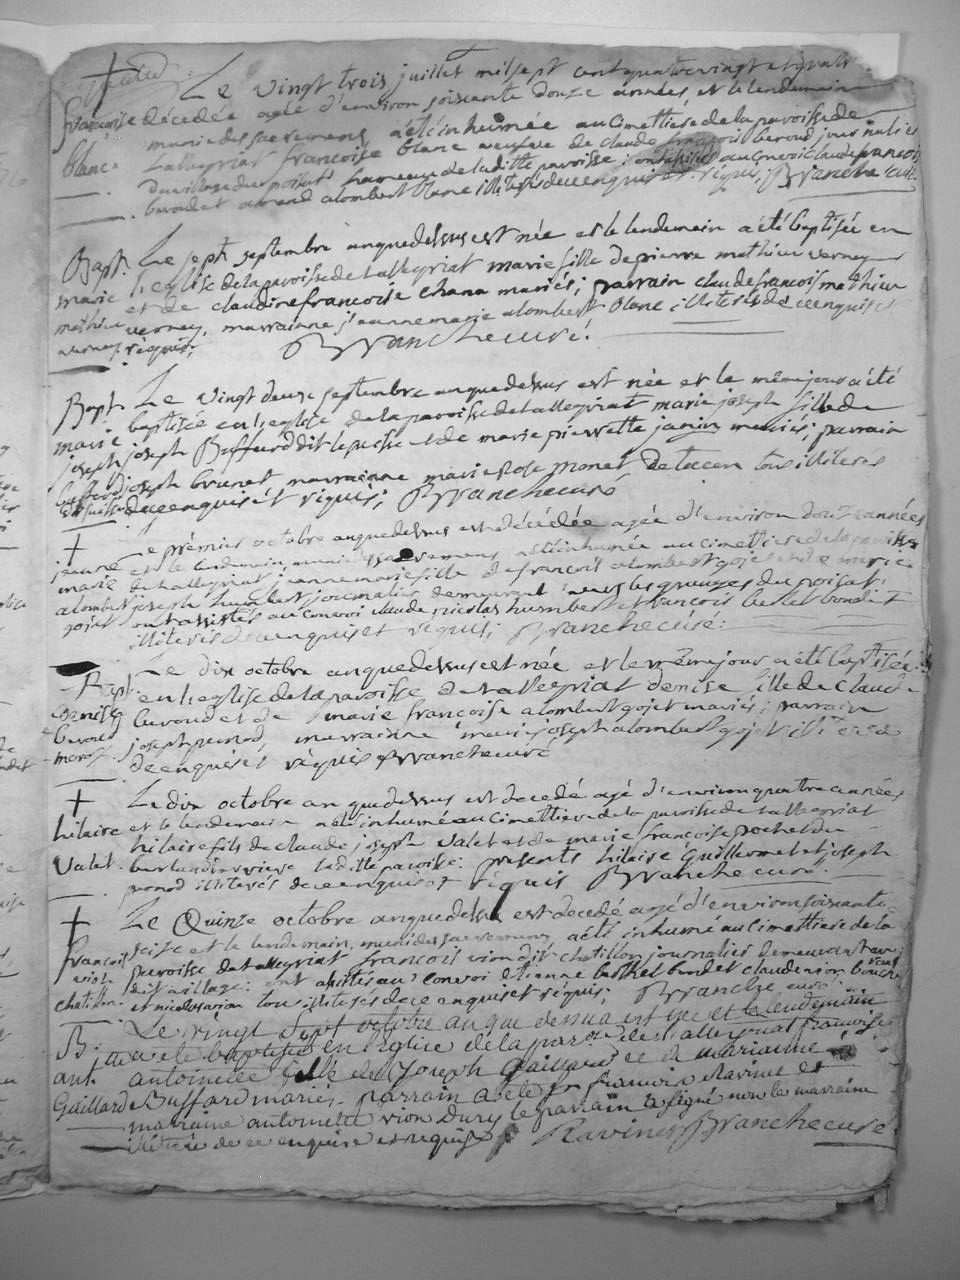 Le vingt trois juillet mil sept cent quatre vingt et
françoise décédée agée d'environ soisante douze années, et le lendemain
munie des sacremens a été inhumée au cimettiere de la paroisse de
blanc tallegriat françoise blanc veufve de claude françois beroud journalier
du village du poisat hameau de laditte paroisse; ont assistés au convoi claude françois
beroud et armand alombert blanc illiteres de ce enquis et requis, Brranche curé
Bapt. Le sept septembre an que dessus est née et le lendemain a été baptisée en
marie l'eglise de la paroisse de tallegriat marie fille de pierre mathieu verney
mathieu et de claudine françoise chana mariés; parrain claude françois mathieu
verney verney, marrainne jeanne marie alombert blanc illiteres de ce enquis et
requis; Brranche curé.
Bapt. Le vingt deux septembre an que dessus est née et le même jour a été
marie baptisée en l'eglise de la paroisse de tallegriat marie joseph fille de
joseph joseph Buffard dit lepuisse et de marie pierrette janin mariés; parrain
buffard joseph brunet marrainne marie rose monet de tacon tous illiteres
de ce enquis et requis; Brranche curé
† Le prémier octobre an que dessus est décédée agée d'environ douze années
jeanne et le lendemain, munie des sacremens a été inhumée au cimettiere de la paroisse
marie de tallegriat jeanne marie fille de françois alombert gojet et de marie
alombert joseph humbert journalier demeurant sous les granges du poisat;
gojet ont assistés au convoi claude nicolas humbert et françois berlet bondet
illiteres de ce enquis et requis; Brranche curé:
Le dix octobre an que dessus est née et le même jour a été baptisée
Bapt. en l'eglise de la paroisse de tallegriat denise fille de claude
denise beroud et de marie françoise alombert gojet mariés; parrain
beroud joseph penod, marrainne marie joseph alombert gojet illiteres
de ce enquis et requis Brranche curé
† Le dix octobre an que dessus est décedé agé d'environ quatre années
hilaire et le lendemain a été inhumé au cimettiere de la paroisse de tallegriat
hilaire fils de claude joseph Valet et de marie françoise pochet du
Valet. laditte paroisse: présents hilaire Guillermet et joseph
penod illiterés de ce enquis et requis Brranche curé.
† Le Quinze octobre an que dessus est decedé agé d'environ soisante
seise et le lendemain, muni des sacremens a été inhumé au cimettiere de la
françois paroisse de tallegriat françois vion dit chatillon journalier demeurant au
vion dit village: ont assistés au convoi etienne berlet bondet claude vion
chatillon et nicolas vion tous illiteres de ce enquis et requis; Brranche curé.
B. Le vingt Sept octobre an que dessus est née et le lendemain
a été baptisée en l'eglise de la paroisse de tallegriat françoise
ant. antoinette fille de Joseph Gaillard et de marianne
Gaillard Buffard mariés. parrain a été françois Ravinet et
marraine antoinette vion Dury le parrain a signé non la marraine
illitérée de ce enquise et requise Ravinet Brranche curé